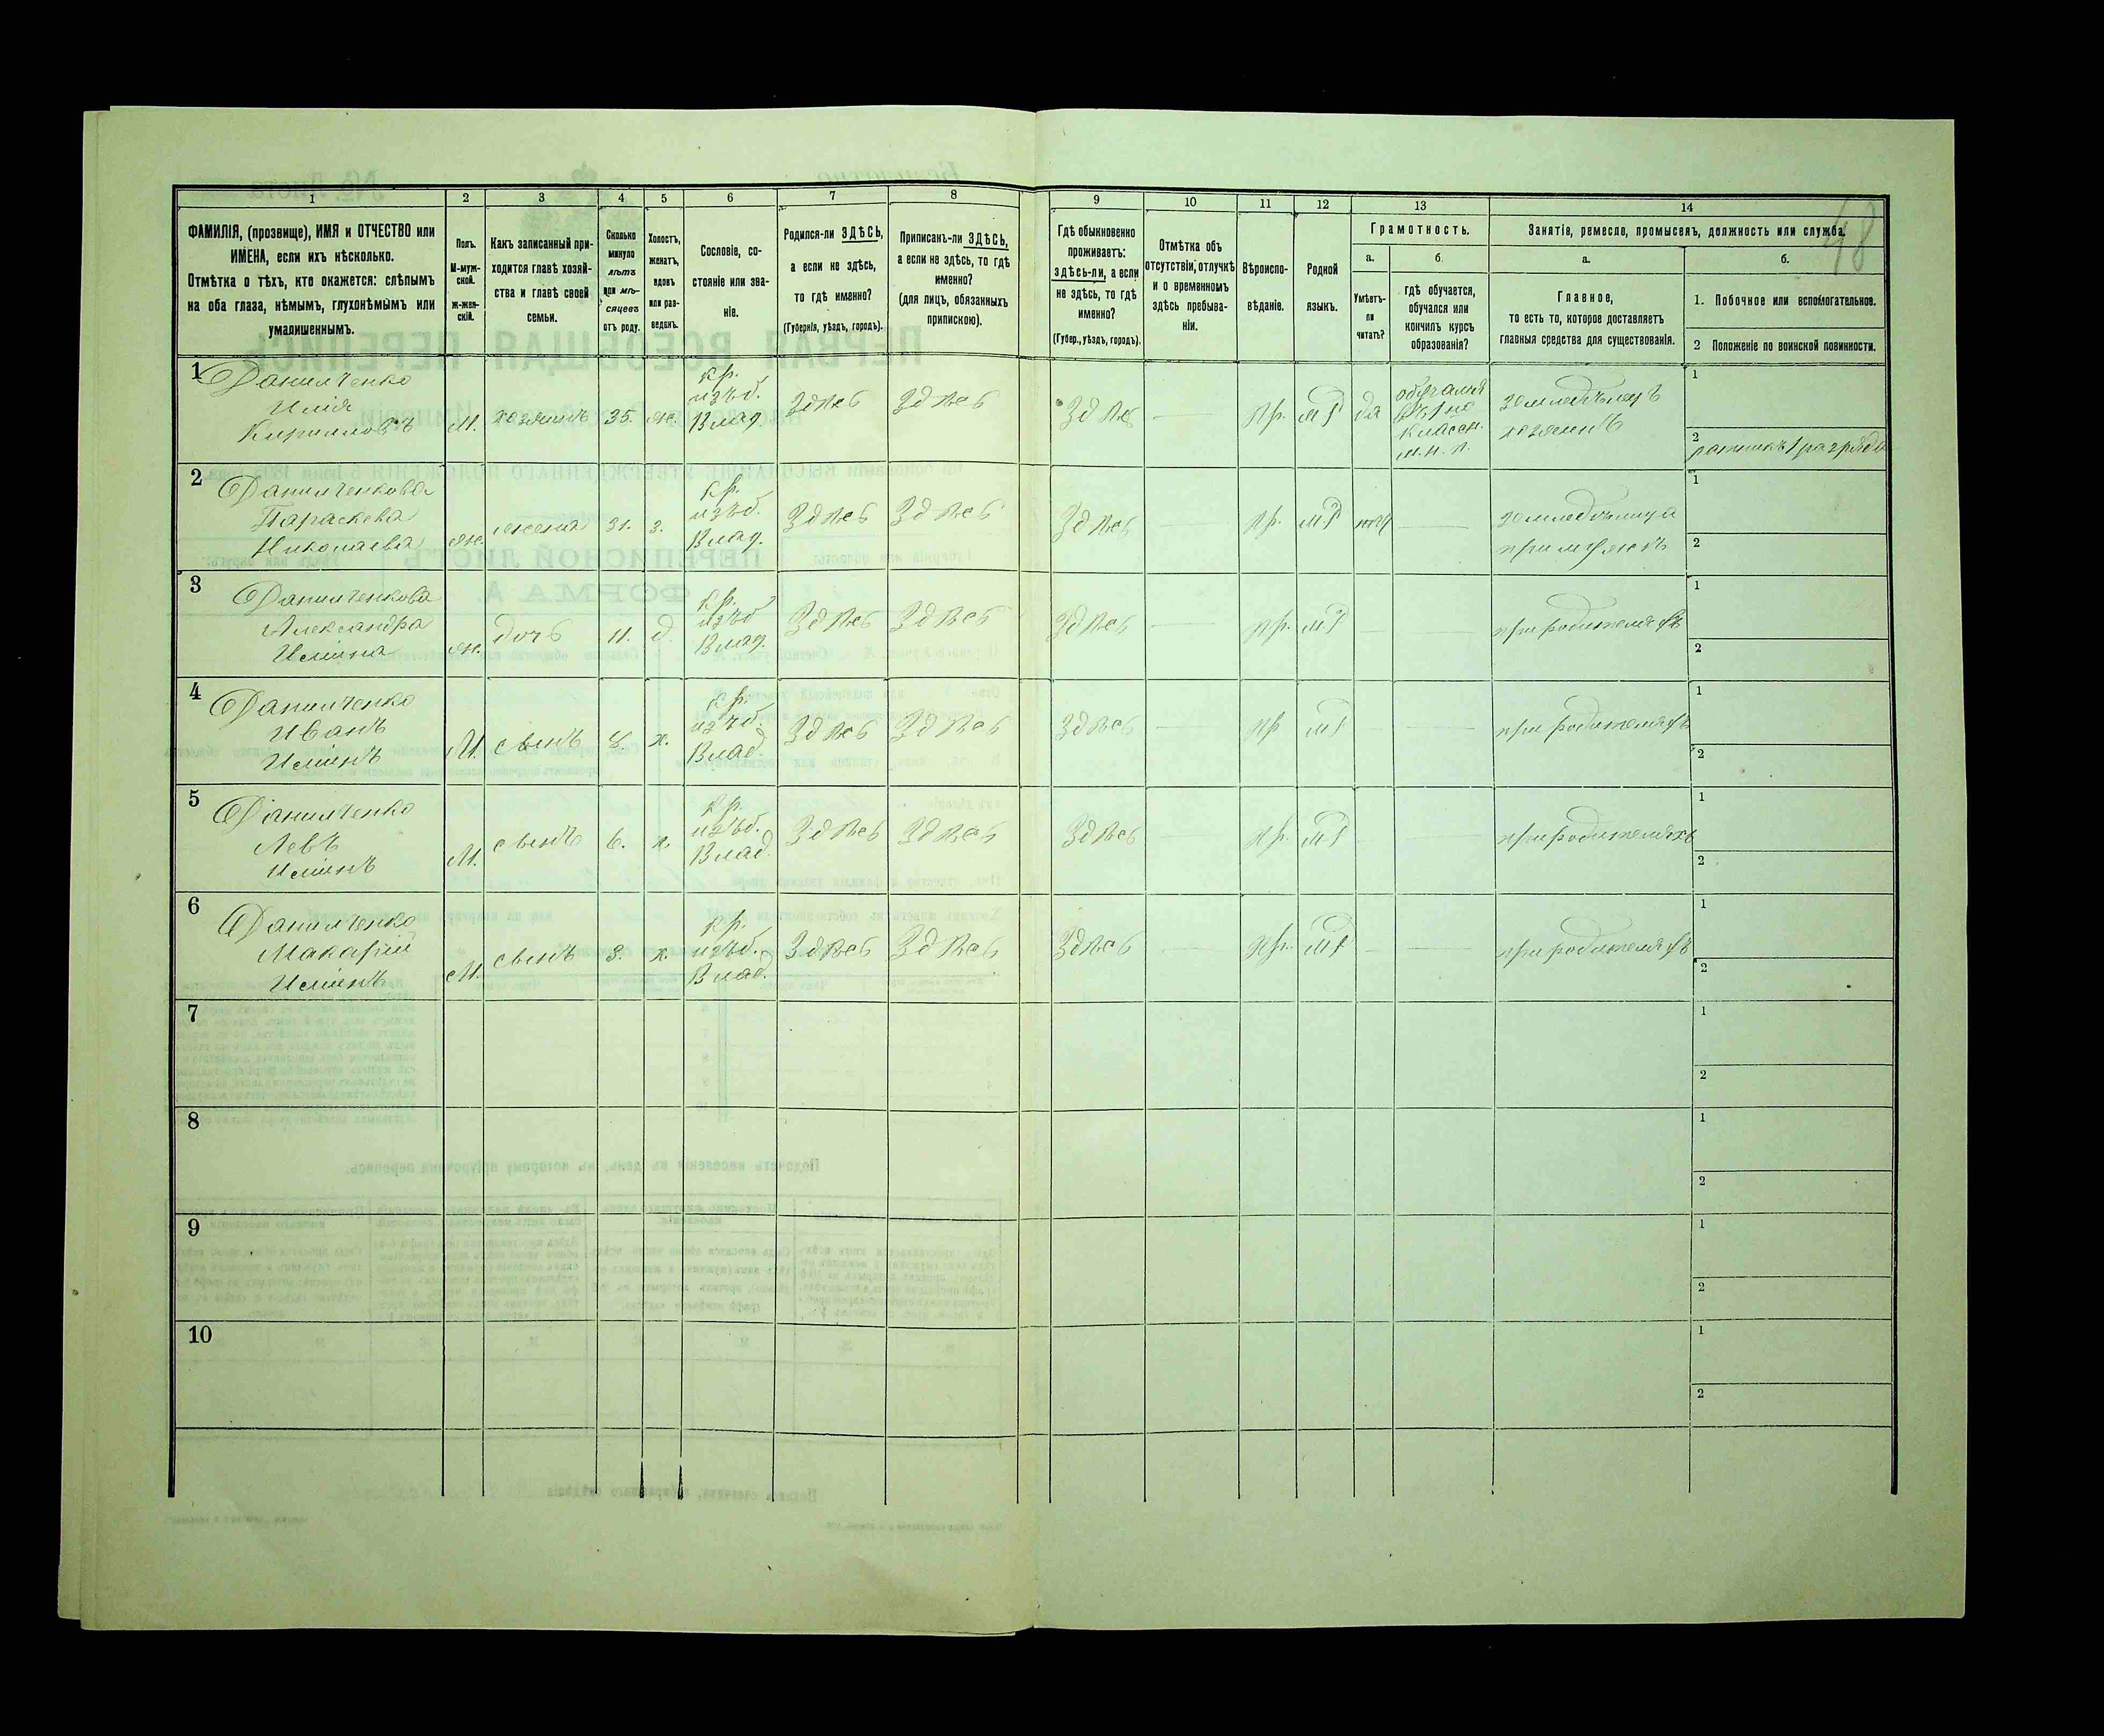 48
1
2
3
4
5
6
7
8
9
10
11
12
13
14
ФАМИЛІЯ, (прозвище), ИМЯ и ОТЧЕСТВО или
ИМЕНА, если ихъ нѣсколько.
Отмѣтка о тѣхъ, кто окажется: слѣпымъ
на оба глаза, нѣмымъ, глухонѣмымъ или
умалишеннымъ.
Полъ.
М-муж-
ской.
Ж-жен-
скій.
Какъ записанный при-
ходится главѣ хозяй-
ства и главѣ своей
семьи.
Сколько
минуло
лѣтъ
или мѣ-
сяцевъ
отъ роду.
Холостъ,
женатъ,
вдовъ
или раз-
веденъ.
Сословіе, со-
стояніе или зва-
ніе.
Родился-ли ЗДѢСЬ,
а если не здѣсь,
то гдѣ именно?
(Губернія, уѣздъ, городъ).
Приписанъ-ли ЗДѢСЬ,
а если не здѣсь, то гдѣ
именно?
(для лицъ, обязанныхъ
припискою).
Гдѣ обыкновенно
проживаетъ:
здѣсь-ли, а если
не здѣсь, то гдѣ
именно?
(Губер., уѣздъ, городъ).
Отмѣтка объ
отсутствіи, отлучкѣ
и о временномъ
здѣсь пребыва-
ніи.
Вѣроиспо-
вѣданіе.
Родной
языкъ.
Грамотность.
а.
Умѣетъ-
ли
читать?
б.
гдѣ обучается,
обучался или
кончилъ курсъ
образованія?
Занятія, ремесло, промыселъ, должность или служба.
а.
Главное,
то есть то, которое доставляетъ
главныя средства для существованія.
б.
1. Побочное или вспомогательное.
2 Положеніе по воинской повинности.
1
Данилченко
Илія
Кирилловъ
М.
хозяинъ
35.
ж.
кр.
изъ б.
Влад.
Здѣсь
Здѣсь
Здѣсь
—
пр.
да
обучался
классн.
земледѣлецъ
хозяинъ
1
2
ратникъ 1 разряда
2
Данилченкова
Параскева
Николаева
ж.
жена
31.
з.
кр.
изъ б.
Влад.
Здѣсь
Здѣсь
Здѣсь
—
пр.
нѣтъ
—
земледѣлица
при мужѣ
1
2
3
Данилченкова
Александра
Иліина
ж.
дочь
11.
д.
кр.
изъ б
Влад.
Здѣсь
Здѣсь
Здѣсь
—
пр.
—
—
при родителяхъ
1
2
4
Данилченко
Иванъ
Иліинъ
М.
сынъ
8.
х.
кр.
изъ б.
Влад.
Здѣсь
Здѣсь
Здѣсь
—
пр
—
—
при родителяхъ
1
2
5
Данилченко
Левъ
Иліинъ
М.
сынъ
6.
х.
кр.
изъ б.
Влад.
Здѣсь
Здѣсь
Здѣсь
—
пр.
—
—
при родителяхъ
1
2
6
Данилченко
Макарій
Иліинъ
М.
сынъ
3.
х.
кр.
изъ б.
Влад.
Здѣсь
Здѣсь
Здѣсь
—
пр.
—
—
при родителяхъ
1
2
7
1
2
8
1
2
9
1
2
10
1
2